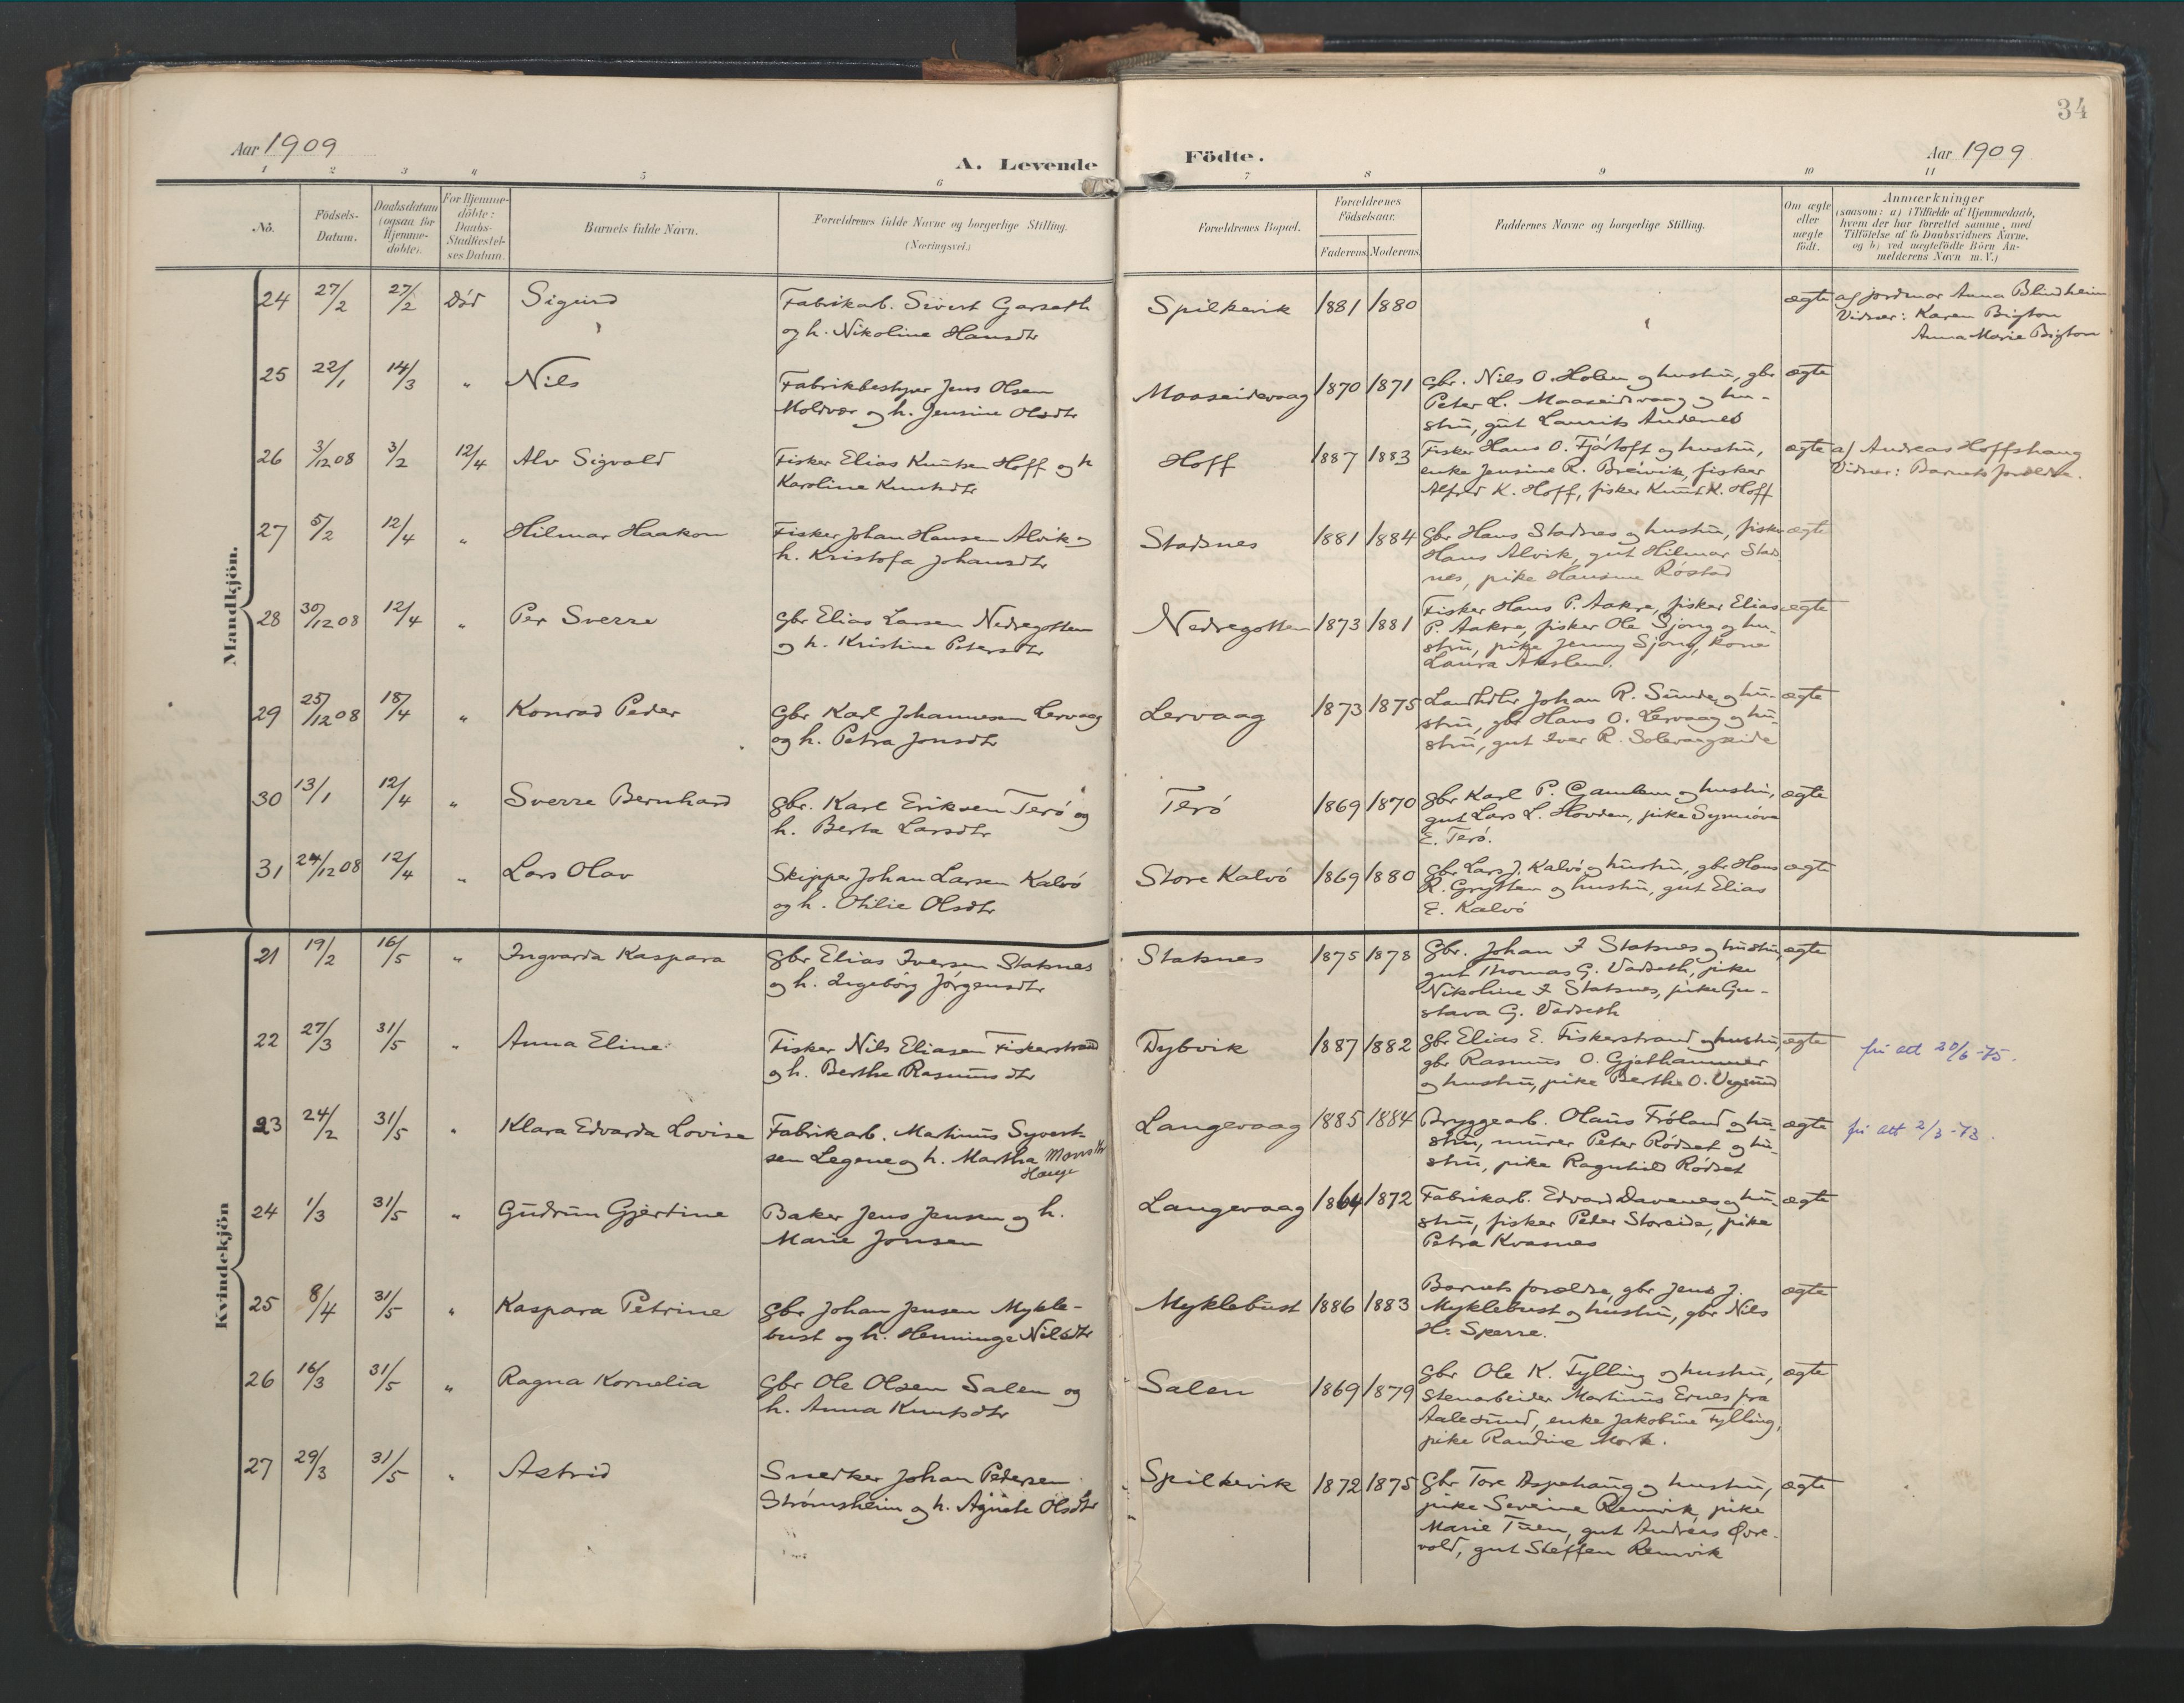 34
Aar 1909
A. Levende Födte.
Aar 1909
1 2 3 4 5 6 7 8 9 10 11
No.
Födsels-
Datum.
Daabsdatum
(ogsaa for
Hjemme-
döbte).
For Hjemme-
döbte:
Daabs-
Stadfæstel-
ses Datum.
Barnets fulde Navn.
Forældrenes fulde Navne og borgerlige Stilling.
(Næringsvei.)
Forældrenes Bopæl.
Forældrenes
Födselsaar.
Faderens. Moderens.
Faddernes Navne og borgerlige Stilling.
Om ægte
eller
uægte
födt.
Anmærkninger
(saasom: a) i Tilfælde af Hjemmedaab,
hvem der har forrettet samme, med
Tilföielse af to Daabsvidners Navne,
og b) ved uægtefödte Börn An-
melderens Navn m. V.)
Mandkjön.
24 27/2 27/2 Död Sigurd
Fabrikarb. Sivert Garseth
og h. Nikoline Hansdtr
Spilkevik 1881 1880 ægte
af jordmor Anna Blindheim
Vidner: Karen Bigton
Anna Marie Bigton
25 22/1 14/3 " Nils
Fabrikbestyrer Jens Olsen
Moldvær og h. Jensine Olsdtr
Maaseidevaag 1870 1871
Gbr. Nils O. Holen og hustru, gbr
Peter L. Maaseidvaag og hu-
stru, gut Laurits Andenes
ægte
26 3/12 08 3/2 12/4 Alv Sigvald
Fisker Elias Knutsen Hoff og h
Karoline Knutsdtr
Hoff 1887 1883
Fisker Hans O. Fjørtoft og hustru,
enke Jensine R. Breivik, fisker
Alfred K. Hoff, fisker Knut K. Hoff
ægte
af Andreas Hoffshaug
Vidner: Barnets forældre.
27 5/2 12/4 " Hilmar Haakon
Fisker Johan Hansen Alvik og
h. Kristofa Johansdtr
Stadsnes 1881 1884
Gbr Hans Stadsnes og hustru, fisker
Hans Alvik, gut Hilmar Stads
nes, pike Hansine Röstad
ægte
28 30/12 08 12/4 " Per Sverre
Gbr Elias Larsen Nedregotten
og h. Kristine Petersdtr
Nedregotten 1873 1881
Fisker Hans P. Aakre, fisker Elias
P. Aakre, fisker Ole Sjong og hu-
stru, pike Jenny Sjong, kone
Laura
ægte
29 25/12 08 18/4 " Konrad Peder
Gbr Karl Johannesen Lervaag
og h. Petra Jonsdtr
Lervaag 1873 1875
Landhdlr Johan R. Sunde og hu-
stru, gbr Hans O. Lervaag og hu-
stru, gut Iver R. Solevaagseide
ægte
30 13/1 12/4 " Sverre Bernhard
Gbr. Karl Eriksen Terö og
h. Berta Larsdtr
Terö 1869 1870
Gbr Karl P. Gamlem og hustru,
gut Lars L. Hovden, pike Synnöve
E. Terö.
ægte
31 24/12 08 12/4 " Lars Olav
Skipper Johan Larsen Kalvö
og h. Otilie Olsdtr
Store Kalvö 1869 1880
Gbr Lars J. Kalvö og hustru, gbr Hans
R. Grytten og hustru, gut Elias
E. Kalvö
ægte
Kvindekjön
21 19/2 16/5 " Ingvarda Kaspara
Gbr Elias Iversen Statsnes
og h. Ingeborg Jörgensdtr
Statsnes 1875 1878
Gbr. Johan I Statsnes og hustru,
gut Thomas G. Vadseth, pike
Nikoline I Statsnes, pike Gu-
stava G. Vadseth
ægte
22 27/3 31/5 " Anna Eline
Fisker Nils Eliasen Fiskerstrand
og h. Berthe Rasmusdtr
Dybvik 1887 1882
Gbr Elias E. Fiskerstrand og hustru,
gbr Rasmus O. Gjethammer
og hustru, pike Berthe O. Vegsund
ægte
fri att 20/6-75.
23 24/2 31/5 " Klara Edvarda Lovise
Fabrikarb. Martinus Syvert-
sen Legene og h. Martha Monsdtr
Hauge
Langevaag 1885 1884
Bryggearb. Olaus Fröland og hu-
stru, murer Peter Rödset og hu-
stru, pike Ragnhild Rödset
ægte
fri att 2/3-73.
24 1/3 31/5 " Gudrun Gjertine
Baker Jens Jensen og h.
Marie Jonsen
Langevaag 1864 1872
Fabrikarb. Edvard Davenes og hu-
stru, fisker Peder Storeide, pike
Petra Kvasnes
ægte
25 8/4 31/5 " Kaspara Petrine
Gbr Johan Jensen Mykle-
bust og h. Henninge Nilsdtr
Myklebust 1886 1883
Barnets forældre, gbr Jens J.
Myklebust og hustru, gbr Nils
H. Sperre.
ægte
26 16/3 31/5 " Ragna Kornelia
Gbr Ole Olsen Salen og
h. Anna Knutsdtr
Salen 1869 1879
Gbr Ole K. Fylling og hustru,
Stenarbeider Martinus Ernes fra
Aalesund, enke Jakobine Fylling,
pike Randine Mork.
ægte
27 29/3 31/5 " Astrid
Snedker Johan Pedersen
Strömsheim og h. Agnete Olsdtr
Spilkevik 1872 1875
Gbr Tore Aspehaug og hustru,
pike Severine Remvik, pike
Marie Tuen, gut Andreas Øvre-
vold, gut Steffen Remvik
ægte